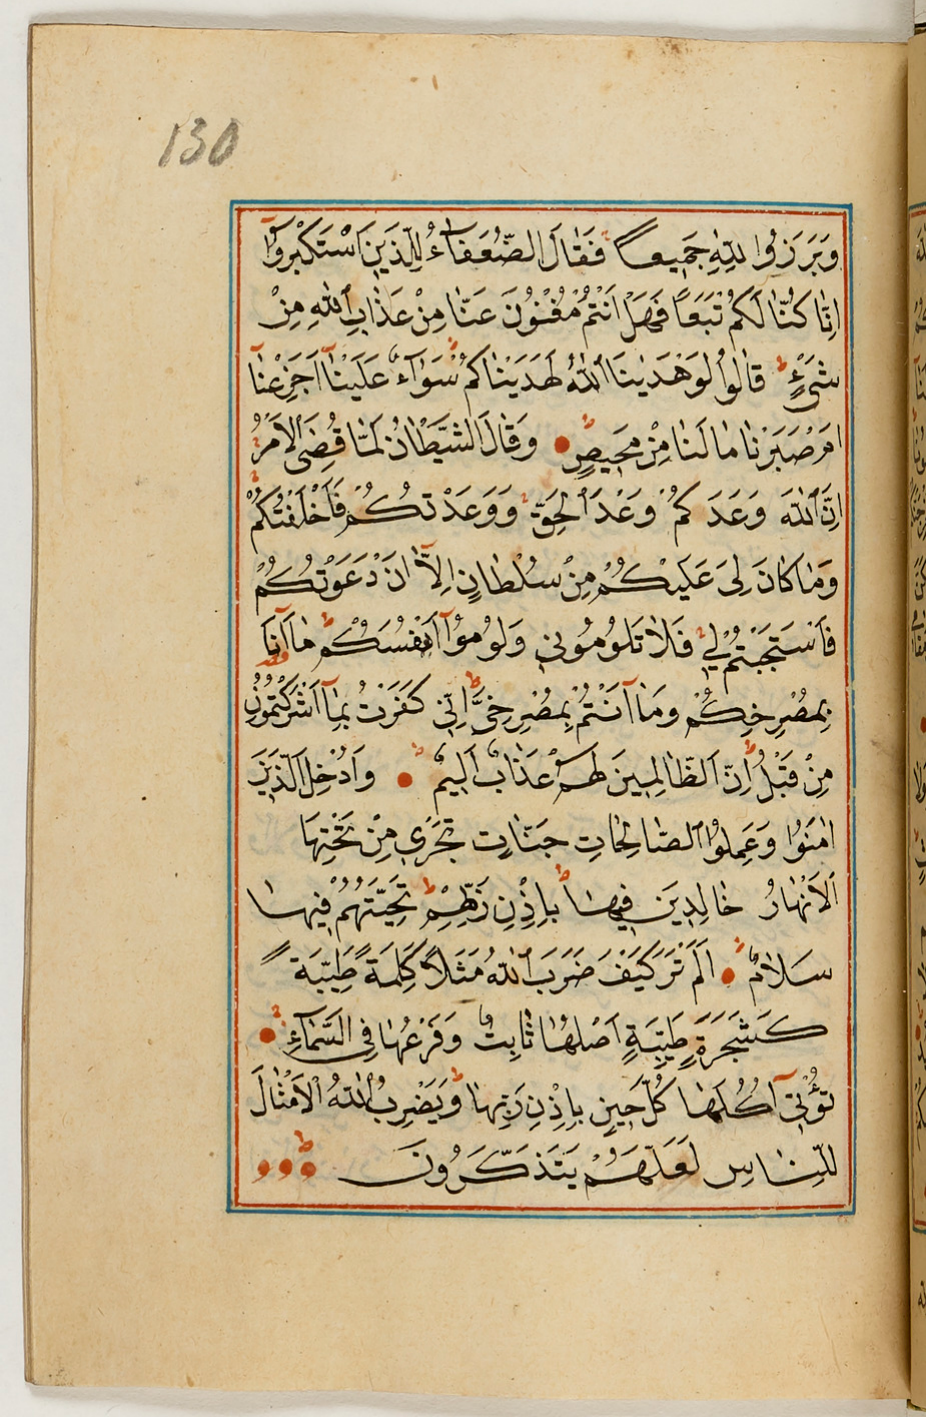 130
وَبَرَزُوا لِلّٰهِ جَمِيعاً فَقَالَ الضُّعَفَاءُ لِلَّذِينَ اسْتَكْبَرُوا
اِنَّا كُنَّا لَكُمْ تَبَعاً فَهَلْ اَنْتُمْ مُغْنُونَ عَنَّا مِنْ عَذَابِ اللّٰهِ مِنْ
شَيْءٍ قَالُوا لَوْ هَدٰينَا اللّٰهُ لَهَدَيْنَاكُمْ سَوَاءٌ عَلَيْنَا اَجَزِعْنَا
اَمْ صَبَرْنَا مَا لَنَا مِنْ مَحِيصٍ وَقَالَ الشَّيْطَانُ لَمَّا قُضِيَ الْاَمْرُ
اِنَّ اللّٰهَ وَعَدَكُمْ وَعْدَ الْحَقِّ وَوَعَدْتُكُمْ فَاَخْلَفْتُكُمْ
وَمَا كَانَ لِيَ عَلَيْكُمْ مِنْ سُلْطَانٍ اِلَّا اَنْ دَعَوْتُكُمْ
فَاسْتَجَبْتُمْ لِي فَلَا تَلُومُونِي وَلُومُوا اَنْفُسَكُمْ مَا اَنَا
بِمُصْرِخِكُمْ وَمَا اَنْتُمْ بِمُصْرِخِيَّ اِنِّي كَفَرْتُ بِمَا اَشْرَكْتُمُونِ
مِنْ قَبْلُ اِنَّ الظَّالِمِينَ لَهُمْ عَذَابٌ اَلِيمٌ وَاُدْخِلَ الَّذِينَ
اٰمَنُوا وَعَمِلُوا الصَّالِحَاتِ جَنَّاتٍ تَجْرِي مِنْ تَحْتِهَا
الْاَنْهَارُ خَالِدِينَ فِيهَا بِاِذْنِ رَبِّهِمْ تَحِيَّتُهُمْ فِيهَا
سَلَامٌ اَلَمْ تَرَ كَيْفَ ضَرَبَ اللّٰهُ مَثَلاً كَلِمَةً طَيِّبَةً
كَشَجَرَةٍ طَيِّبَةٍ اَصْلُهَا ثَابِتٌ وَفَرْعُهَا فِي السَّمَاءِ
تُؤْتِي اُكُلَهَا كُلَّ حِينٍ بِاِذْنِ رَبِّهَا وَيَضْرِبُ اللّٰهُ الْاَمْثَالَ
لِلنَّاسِ لَعَلَّهُمْ يَتَذَكَّرُونَ